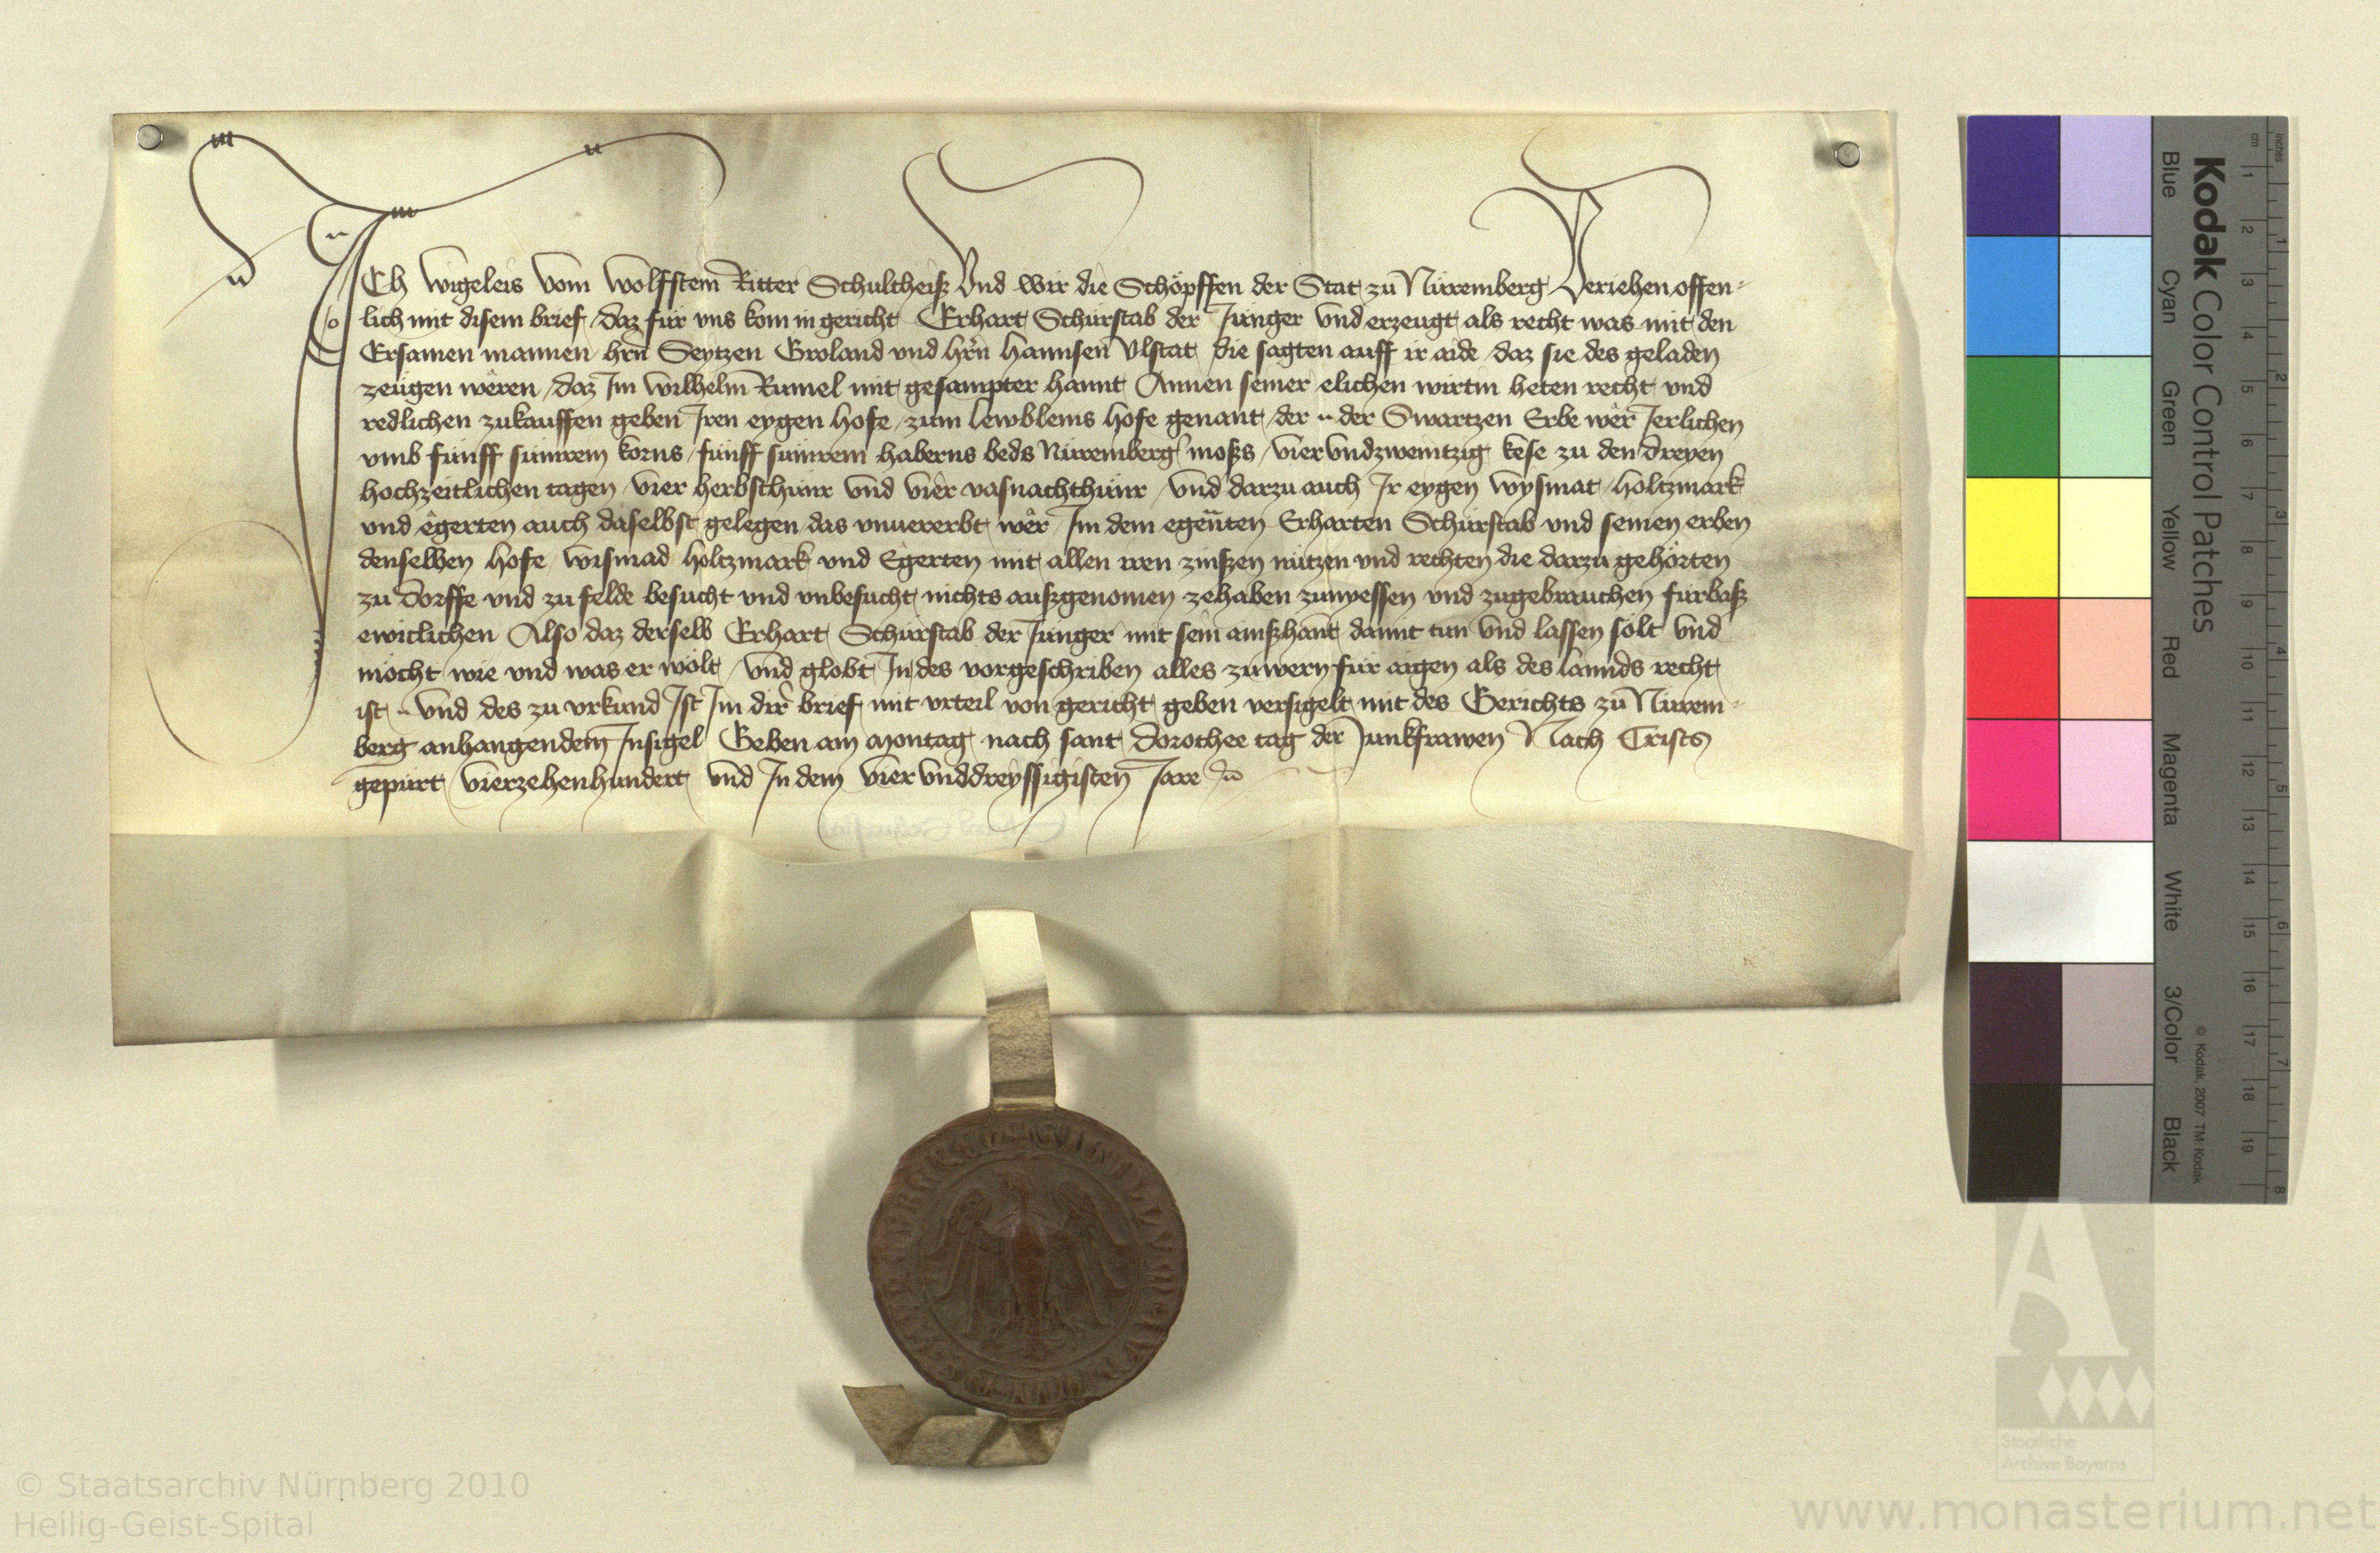 ICh Wigeleis Vom Wolffstein Ritter Schultheiß Vnd wir die Schöpffen der Stat zu Nüremberg Veriehen offen-
lich mit disem brief daz für vns kom in gericht Erhart Schürstab der Jünger Vnd erzeugt als recht was mit den
Ersamen mannen hrn Seytzen Groland vnd hrn hannsen Vlstat die sagten auff ir aide daz sie des geladen
zeügen wêren daz Im Wilhelm Rumel mit gesampter hannt Annen seiner elichen wirtin heten recht vnd
redlichen zukauffen geben Iren eygen hofe zum lewbleins hofe genant der der Swartzen Erbe wêr Jerlichen
vmb fünff sümrein korns fünff sümrein haberns beds Nüremberg moßs vier vndzweintzig kese zu den dreyen
hochzeitlichen tagen Vier herbsthünr Vnd Vier vasnachthünr Vnd darzu auch Ir eygen Wysmat holtzmark
vnd êgerten auch daselbst gelegen das vnuererbt wêr Im dem egenten Erharten Schürstab vnd seinen erben
denselben hofe Wismad holtzmark vnd Egerten mit allen iren zinßen nützen vnd rechten die darzu gehörten
zu dorffe vnd zu felde besucht vnd vnbesucht nichts außgenomen zehaben zunyessen vnd zugebrauchen fürbaß
ewiclichen Also daz derselb Erhart Schürstab der Jünger mit sein ainßhant damit tun Vnd lassen sölt Vnd
möcht wie vnd was er wölt Vnd globt In des vorgeschriben alles zuwern für aigen als des lannds recht
ist Vnd des zu vrkund Ist Im dirr brief mit vrteil von gericht geben versigelt mit des Gerichts zu Nürem-
berg anhangendem Insigel Geben am Montag nach sant Dorothee tag der Junkfrawen Nach Crists
gepürt Vierzehenhundert Vnd In dem Vier Vnddreyssigisten Jare
Kodak Color Control Patches
© Kodak, 2007 TM: Kodak
Blue Cyan Green Yellow Red Magenta White 3/Color Black
inches 1 2 3 4 5 6 7 8
cm 1 2 3 4 5 6 7 8 9 10 11 12 13 14 15 16 17 18 19
A
Staatliche
Archive Bayerns
© Staatsarchiv Nürnberg 2010
Heilig-Geist-Spital
www.monasterium.net